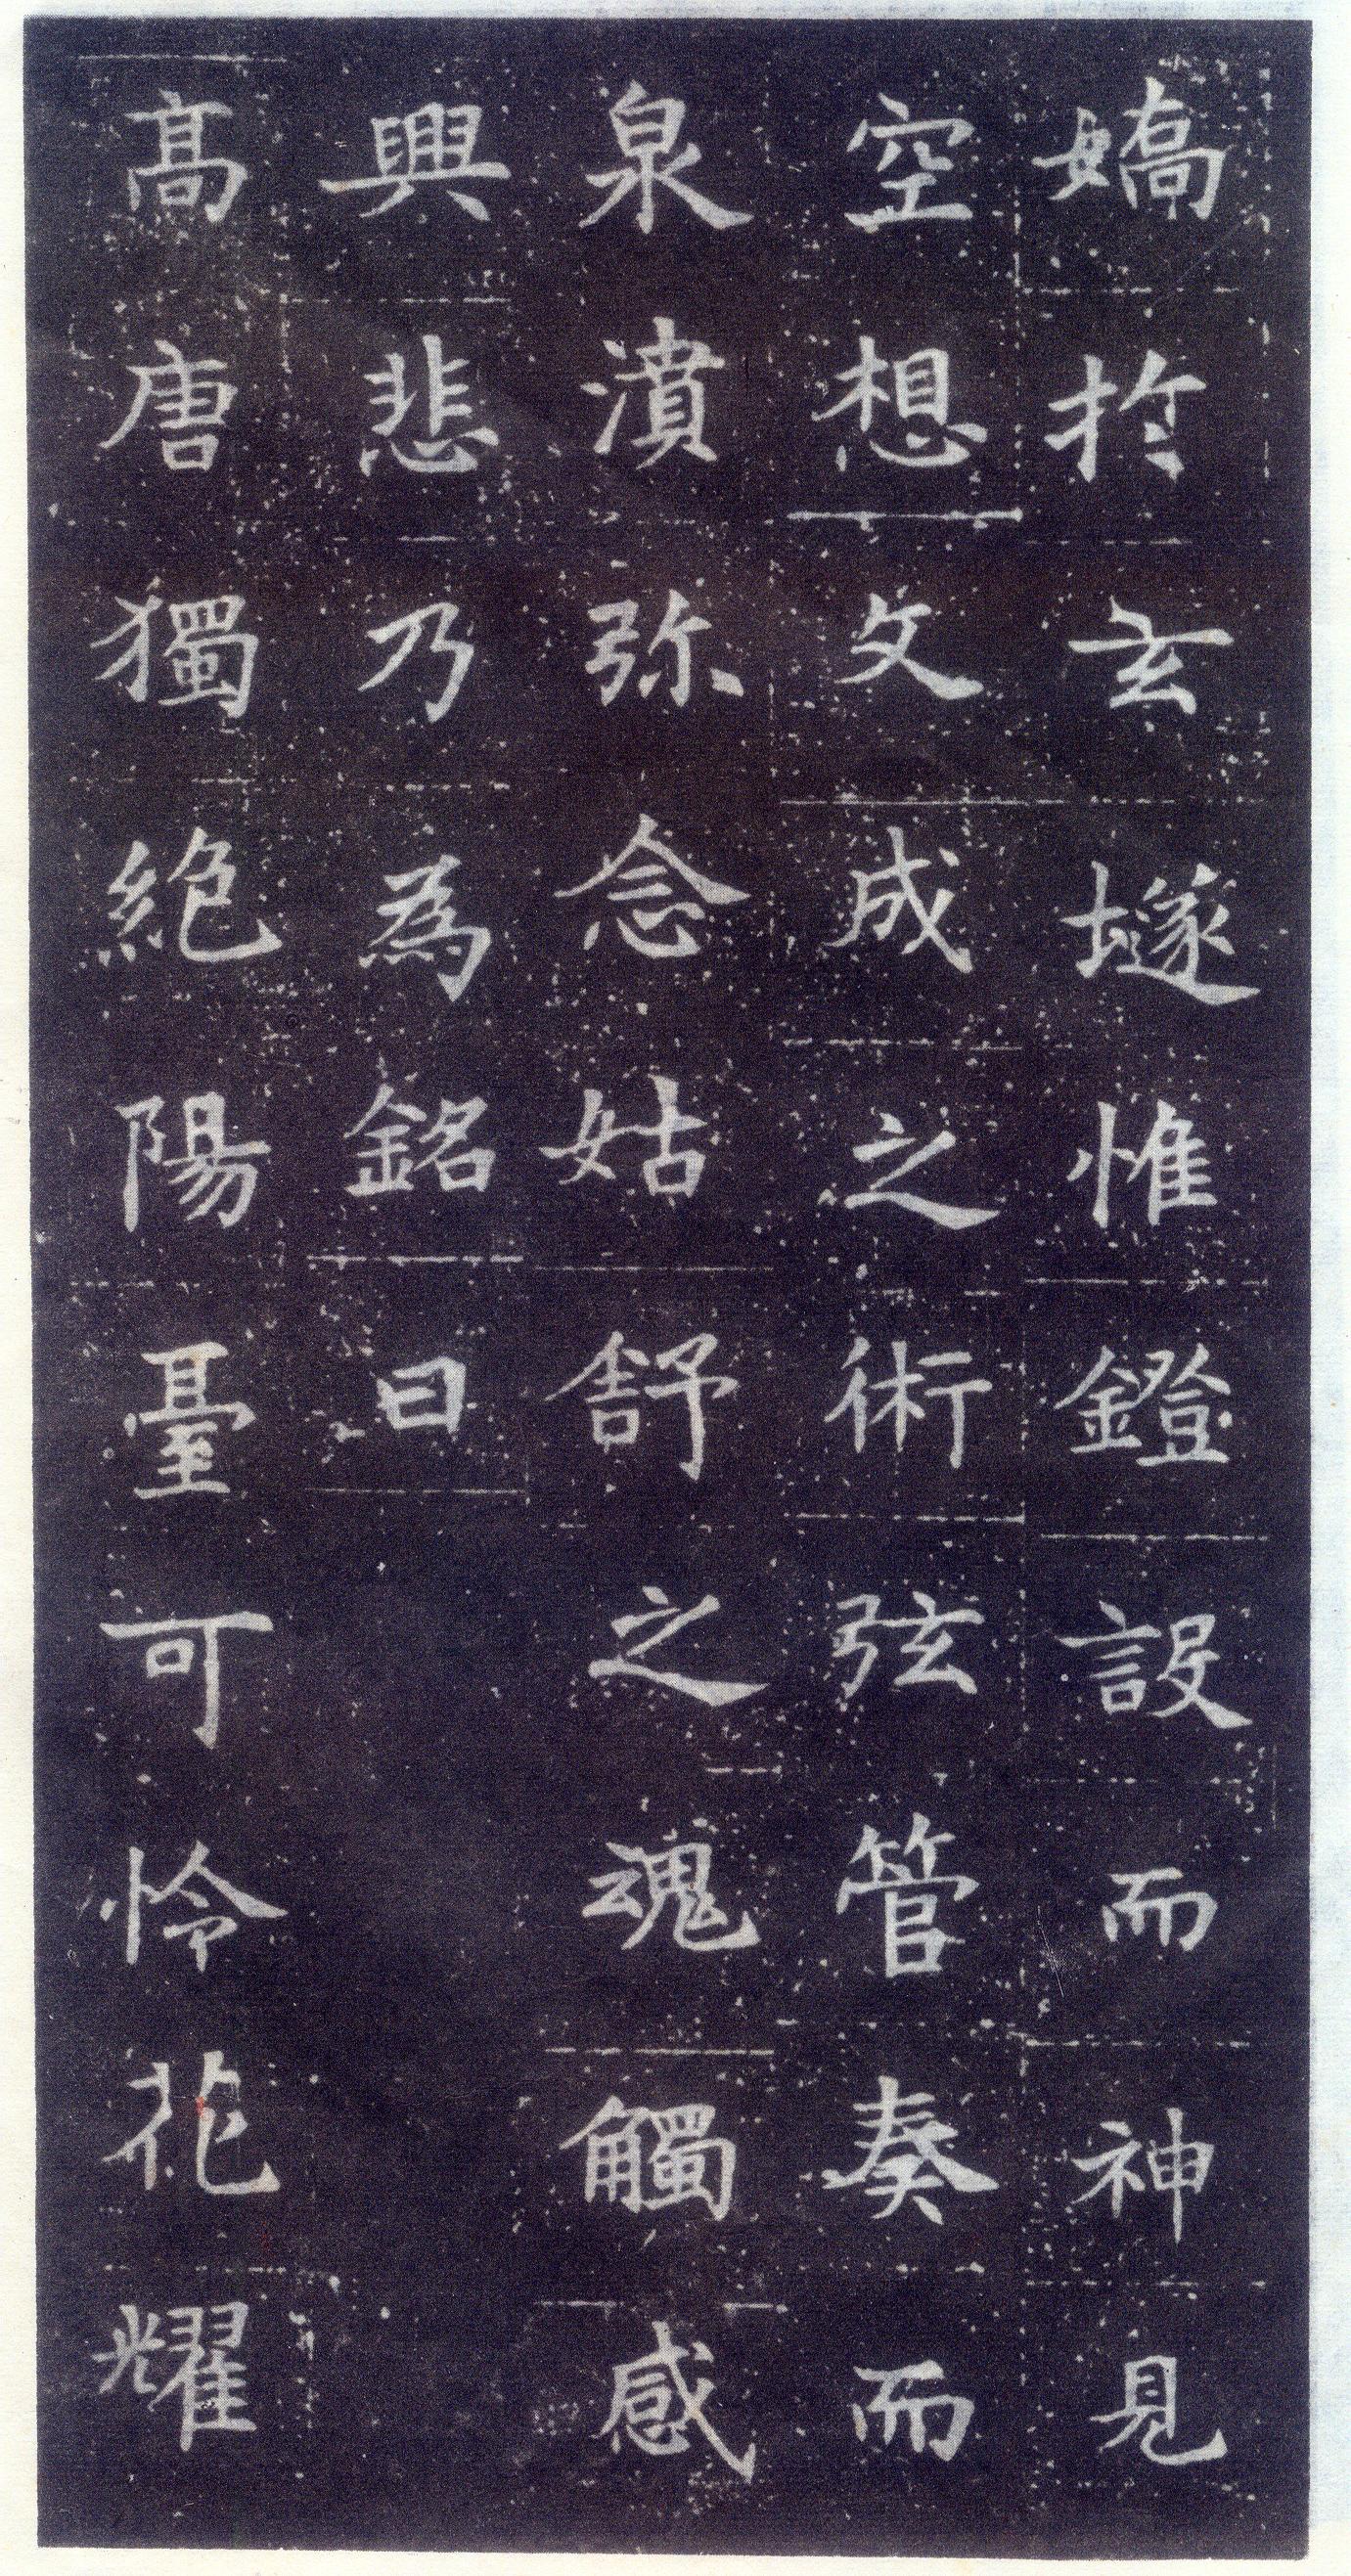 嬌於玄墬惟鐙設而神見
空想文成之術弦管奏而
泉濆弥念姑舒之魂觸感
興悲乃為銘曰
髙唐獨絶陽臺可怜花耀